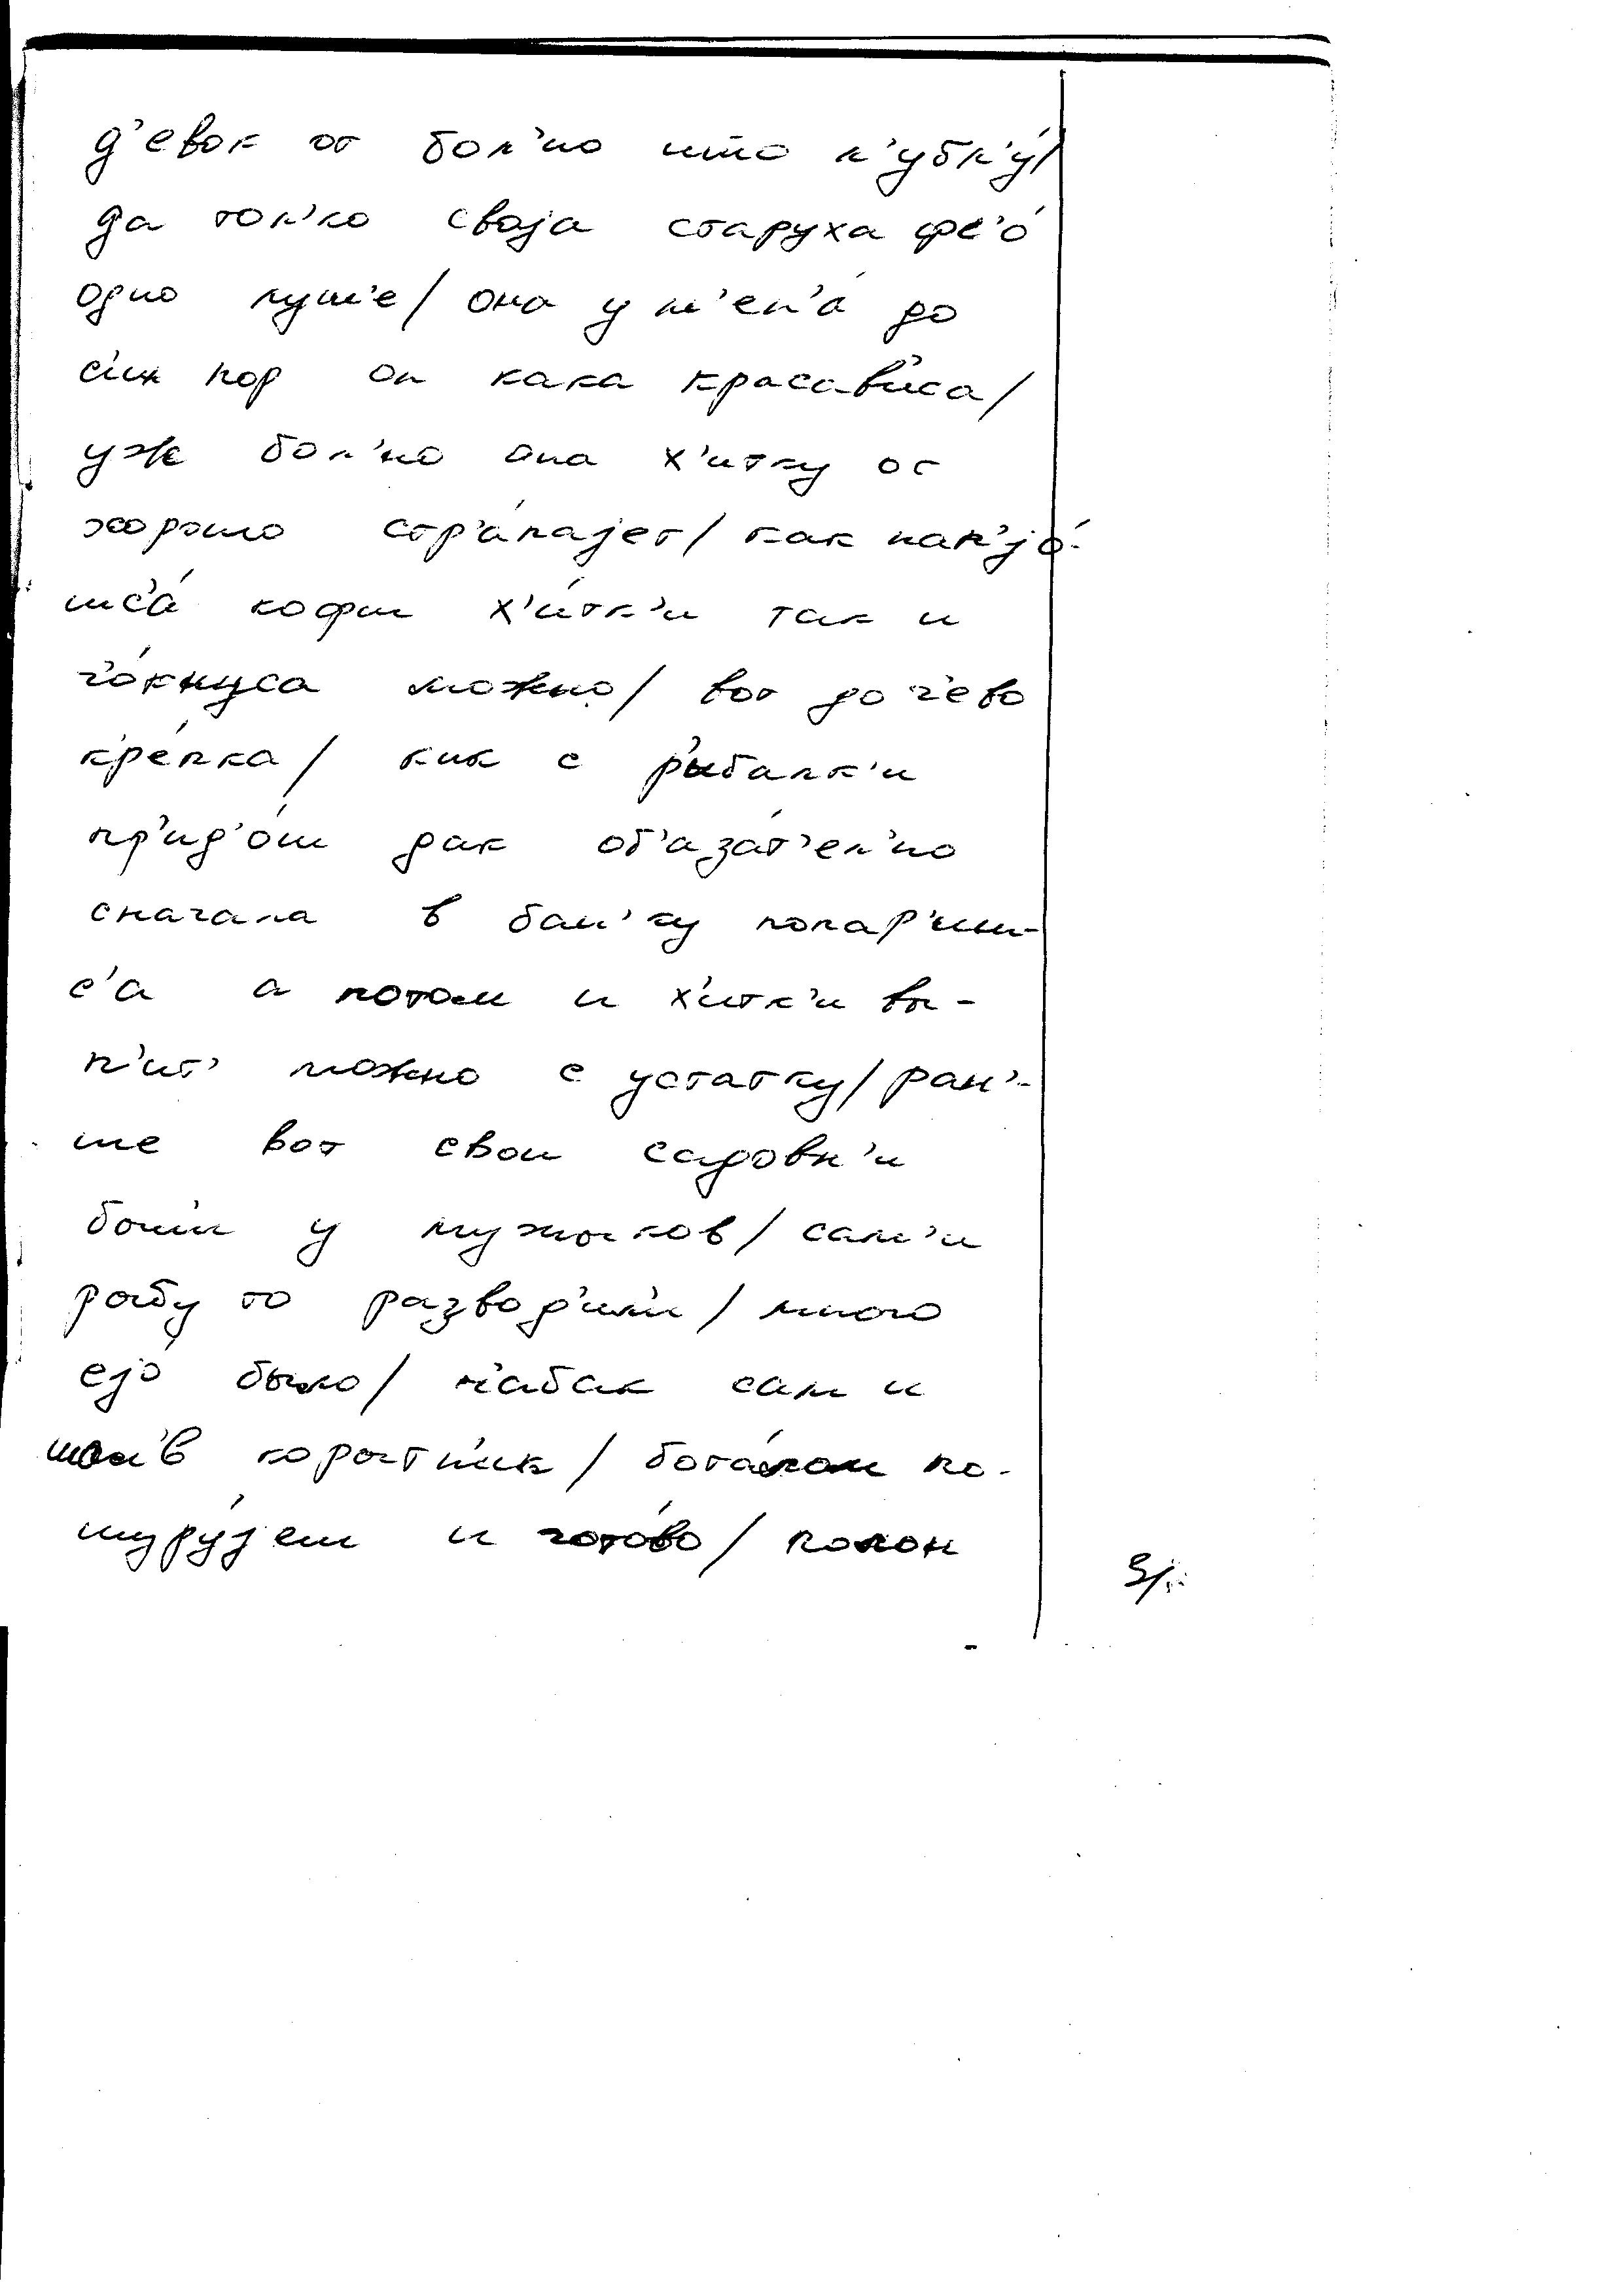 д'евок от бол'но што л'убл'у́/
да тол'ко своја старуха фс'о́
одно лутш'е/ она у м'ен'а́ до
с'их пор он кака красав'иса/
уж бол'но она х'итку ос
хорошо стр'а́пајет/ как нап'јо́-
шс'а́ кофы х'и́тк'и так и
ч'о́кнуса можно/ вот до ч'ево
кр'е́пка/ как с рыбалк'и
пр'ид'о́ш дак об'аза́т'ел'но
сначала в бан'ку попар'иш-
с'а а потом и х'итк'и вы-
п'ит' можно с устатку/ ран'-
ше вот свои садовк'и
были у мужыков/ сам'и
рыбу то развод'ил'и/ много
ејо́ было/ н'абак сам и
коротн'ик/ бота́лом по-
шуру́јеш и гото́во/ полон